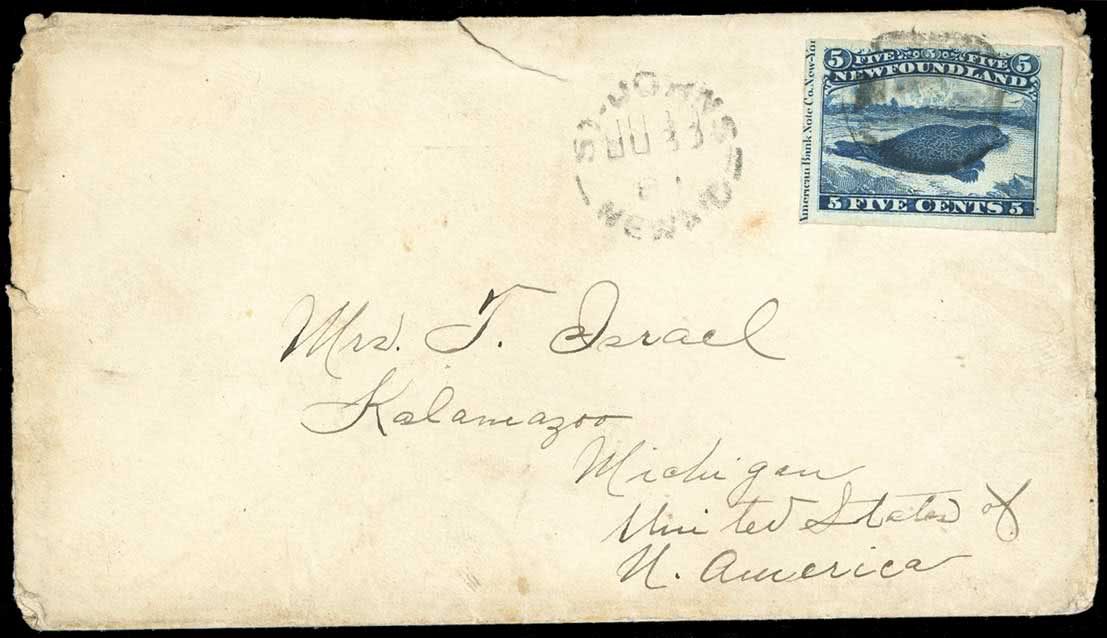 5 FIVE 5 FIVE 5
NEWFOUNDLAND
5 FIVE CENTS 5
American Bank Note Co. New-Yor
ST. JOHNS
NEWF'D
Mrs. T. Israel
Kalamazoo
Michigan
United States of
N. America